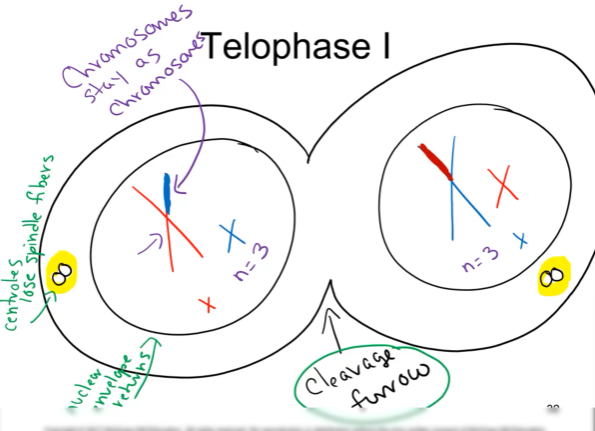 Telophase I
Chromosomes
stay as
chromosomes
centrioles
lose spindle fibers
n=3
n=3
nuclear
envelope
returns
Cleavage
furrow